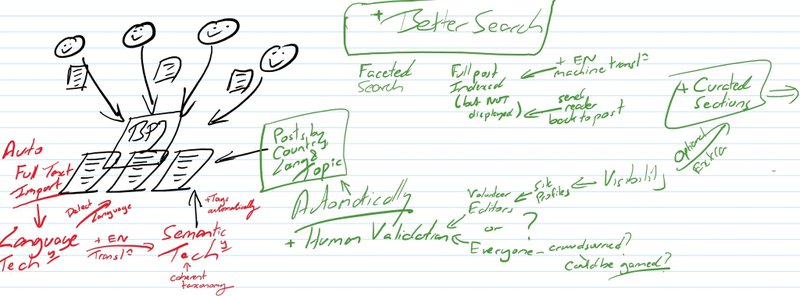 + Better Search
Faceted
Search
Full post
Indexed
(but NOT
displayed)
+ EN
machine transl=
send
reader
back to post
+ Curated
Sections
Optional
Extra
BP
Auto
Full Text
Import
Detect
Language
Language
Tech y
+ EN
Transl=
Semantic
Tech y
coherent
taxonomy
+Tags
automatically
Posts by
Country,
Lang &
Topic
Automatically
+ Human Validation
Volunteer
Editors
or
?
Everyone - crowdsourced?
Could be gamed?
Site
Profiles
Visibility